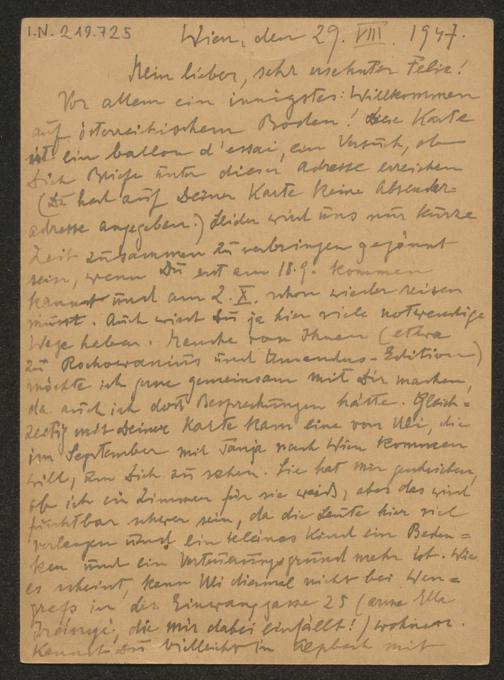 I.N. 219.725
Wien, den 29. VIII. 1947.
Mein lieber, sehr ersehnter Felix!
Vor allem ein innigstes: Willkommen
auf österreichischem Boden! Diese Karte
ist ein ballon d'essai, ein Versuch, ob
Dich Briefe unter dieser Adresse erreichen
(Du hast auf Deiner Karte keine Absender-
adresse angegeben.) Leider wird uns nur kurze
Zeit zusammen zu verbringen gegönnt
sein, wenn Du erst am 18.9. kommen
kannst und am 2. X. schon wieder reisen
musst. Auch wirst Du ja hier viele notwendige
Wege haben. Manche von Ihnen (etwa
zu Rochowanius und Amandus-Edition)
möchte ich gerne gemeinsam mit Dir machen,
da auch ich dort Besprechungen hätte. Gleich-
zeitig mit Deiner Karte kam eine von Uli, die
im September mit Tanja nach Wien kommen
will, um Dich zu sehen. Sie hat mir geschrieben,
ob ich ein Zimmer für sie weiß, aber das wird
furchtbar schwer sein, da die Leute hier viel
verlangen und ein kleines Kind ein Beden-
ken und ein Verteuerungsgrund mehr ist. Wie
es scheint, kann Uli diesmal nicht bei Wen-
grafs in der Einwanggasse 25 (arme Ella
die mir dabei einfällt!) wohnen.
Kannst Du vielleicht in Alpbach mit